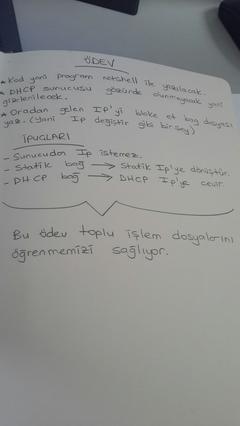 ÖDEV
* Kod yani program netshell ile yazılacak.
* DHCP sunucusu gözünde olunmayacak yani
gizlenilecek.
* Oradan gelen Ip'yi bloke et bag dosyası
yaz. (Yani Ip değiştir gibi bir şey)
İPUÇLARI
- Sunucudan Ip istemez.
- Statik bağ → Statik Ip'ye dönüştür.
- DHCP bağ → DHCP Ip'ye çevir.
Bu ödev toplu işlem dosyalarını
öğrenmemizi sağlıyor.